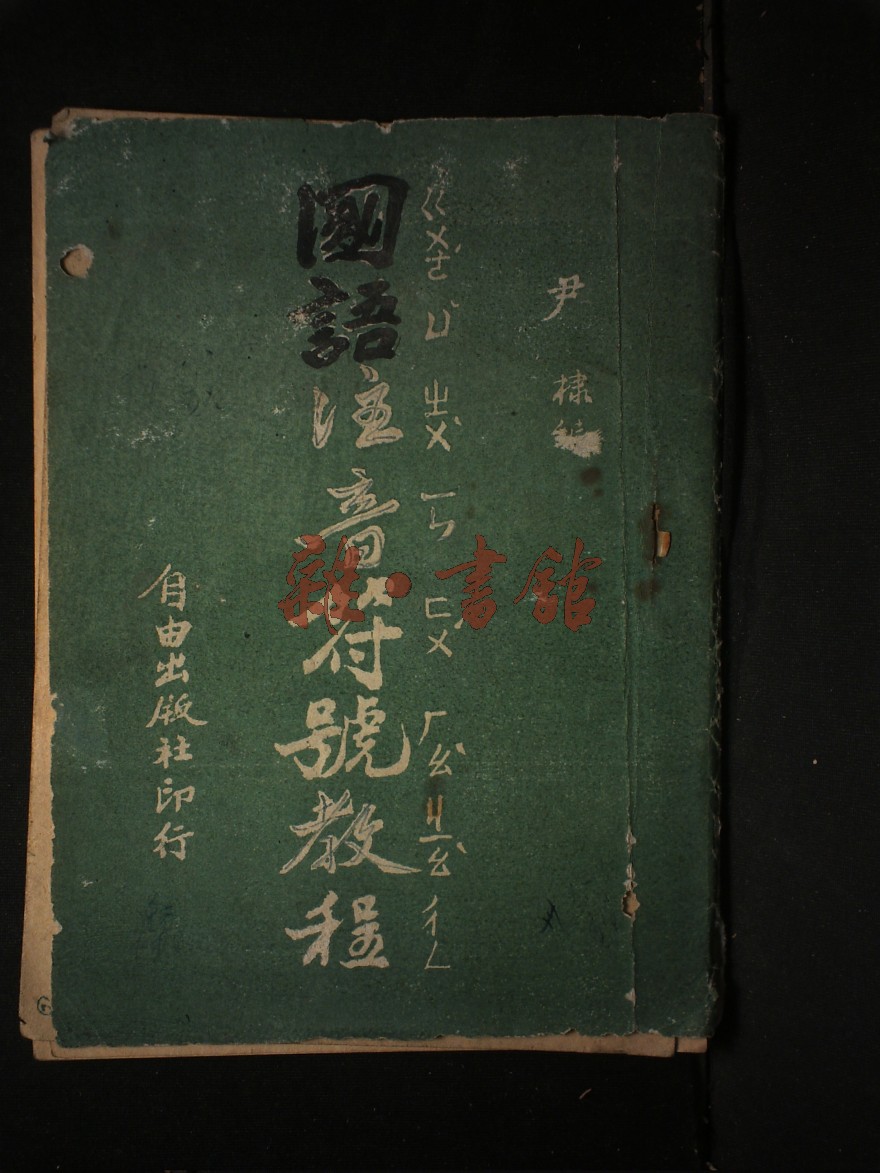 尹棣
ㄍㄨㄛˊ ㄩˇ ㄓㄨˋ ㄧㄣ ㄈㄨˊ ㄏㄠˋ ㄐㄧㄠˋ ㄔㄥ
國語注音符號教程
自由出版社印行
雜·書館